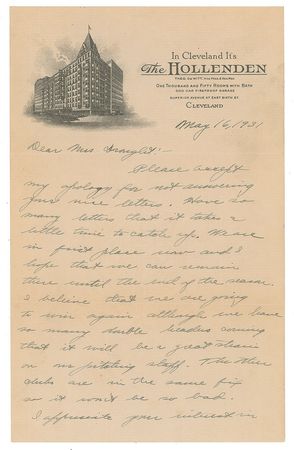 In Cleveland It's
The HOLLENDEN
THEO. DEWITT,
ONE THOUSAND AND FIFTY ROOMS WITH BATH
500 CAR FIREPROOF GARAGE
SUPERIOR AVENUE AT EAST SIXTH ST
CLEVELAND
May 16, 1931
Dear Mrs
Please accept
my apology for not answering
your nice letters. Have so
many letters that it takes a
little time to catch up. We are
in first place now and I
hope that we can remain
there until the end of the season.
I believe that we are going
to win again although we have
so many double headers coming
that it will be a great strain
on my pitching staff. The other
clubs are in the same fix
so it wont be so bad.
I appreciate your interest in